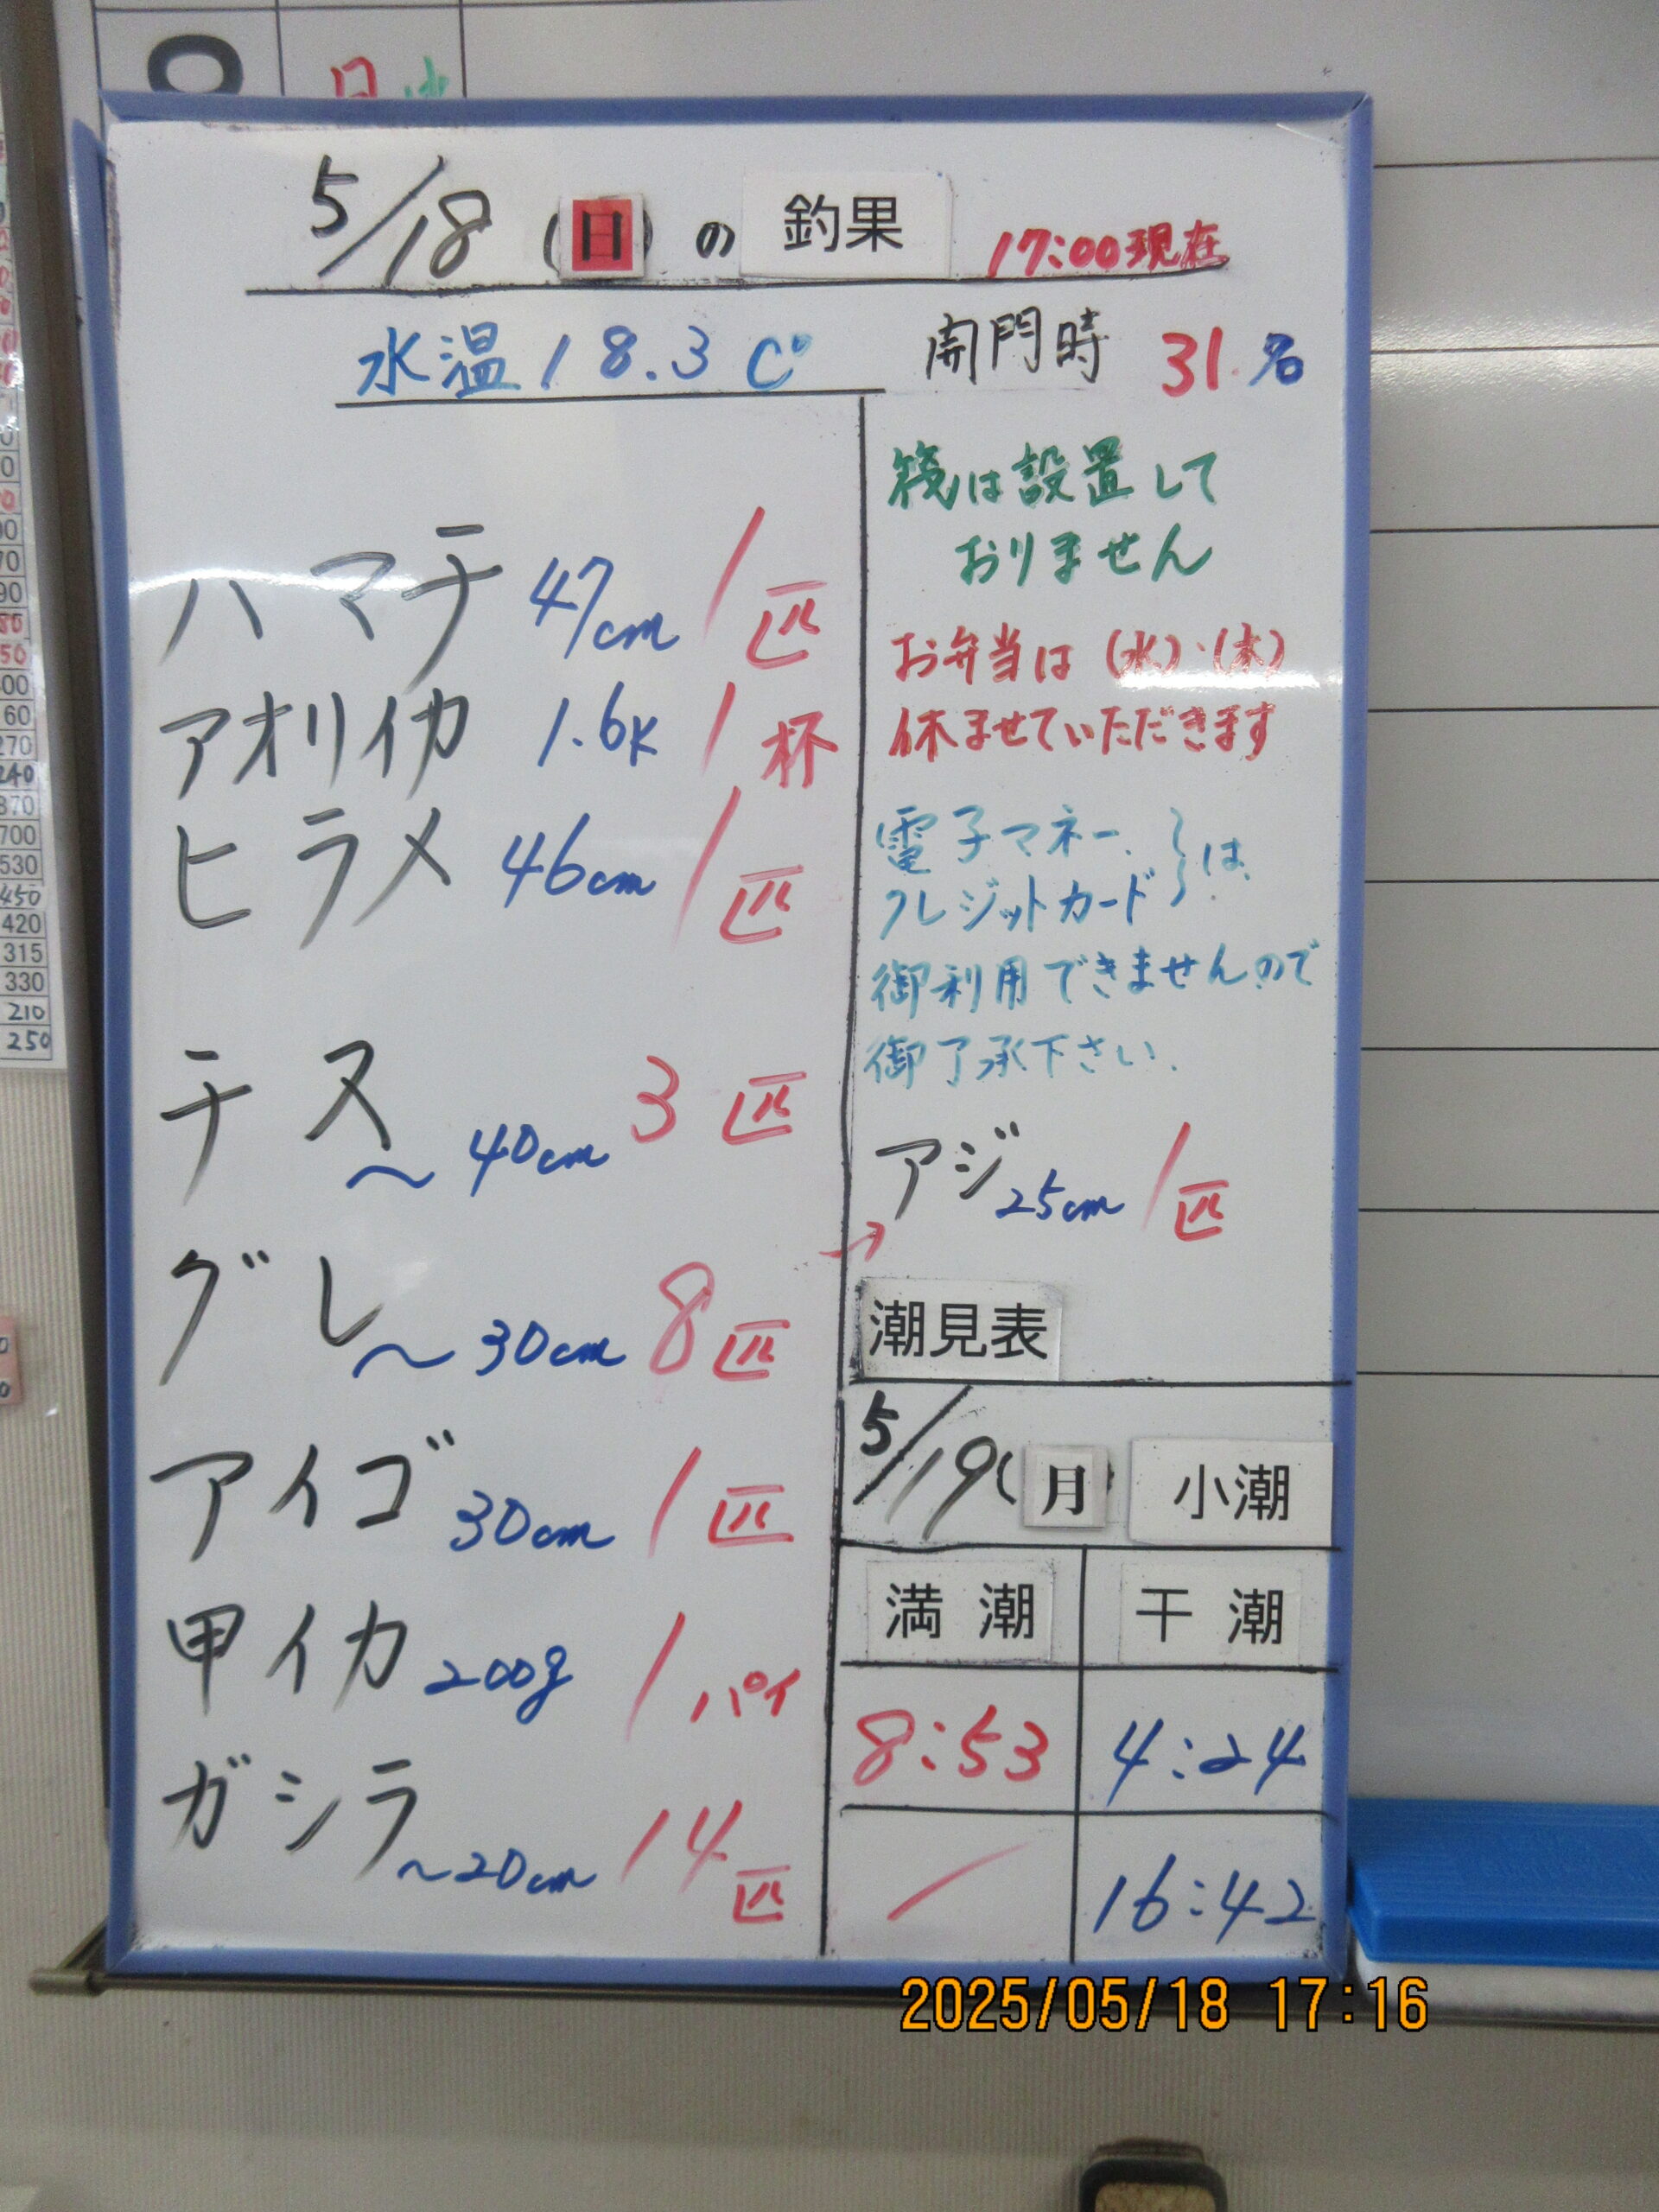 5/18 (日) の 釣果 17:00現在
水温 18.3 C° 開門時 31名
ハマチ 47cm 1匹
アオリイカ 1.6K 1杯
ヒラメ 46cm 1匹
チヌ ~40cm 3匹
グレ ~30cm 8匹
アイゴ 30cm 1匹
甲イカ 200g 1パイ
ガシラ ~20cm 14匹
筏は設置して
おりません
お弁当は(水)・(木)
休ませていただきます
電子マネー、
クレジットカード}は、
御利用できませんので
御了承下さい。
→ アジ 25cm 1匹
潮見表
5/19(月) 小潮
満潮 干潮
8:53 4:24
/ 16:42
2025/05/18 17:16
420
315
330
210
250